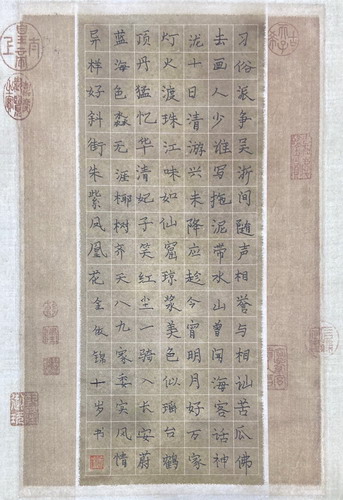 习俗派争吴浙间随声相誉与相讪苦瓜佛
去画人少谁写拖泥带水山曾闻海客话神
泷十日清游兴未降应趁今宵明月好万家
灯火渡珠江味如仙窟琼浆美色似瑶台鹤
顶丹猛忆华清妃子笑红尘一骑入长安蔚
蓝海色淼无涯椰树齐天八九家委实风情
异样好斜街朱紫凤凰花 锦十岁书